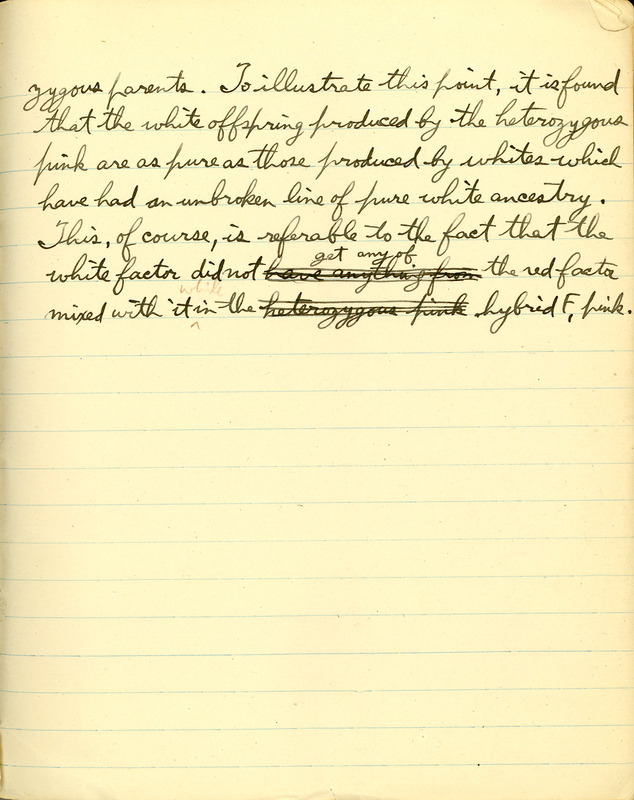 zygous parents. To illustrate this point, it is found
that the white offspring produced by the heterozygous
pink are as pure as those produced by whites which
have had an unbroken line of pure white ancestry.
This, of course, is referable to the fact that the
get any of
white factor did not have anything from the red factor
while
mixed with it in the heterozygous pink hybrid F, pink.